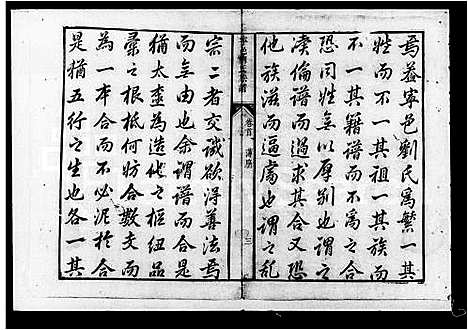 焉葢寧邑劉氏為繁一其
姓而不一其祖一其族而
不一其籍譜而不為之合
恐同姓無以厚別也為之
渙倫譜而過求其合又恐
他族滋而逼處也謂之乱
卷首 譜序
三
宗二者交譏欲得善法焉
而無由也余謂譜而合是
猶太壺為造化之樞紐品
彙之根柢何妨合數支而
為一本合而不必泥於合
是猶五行之生也各一其